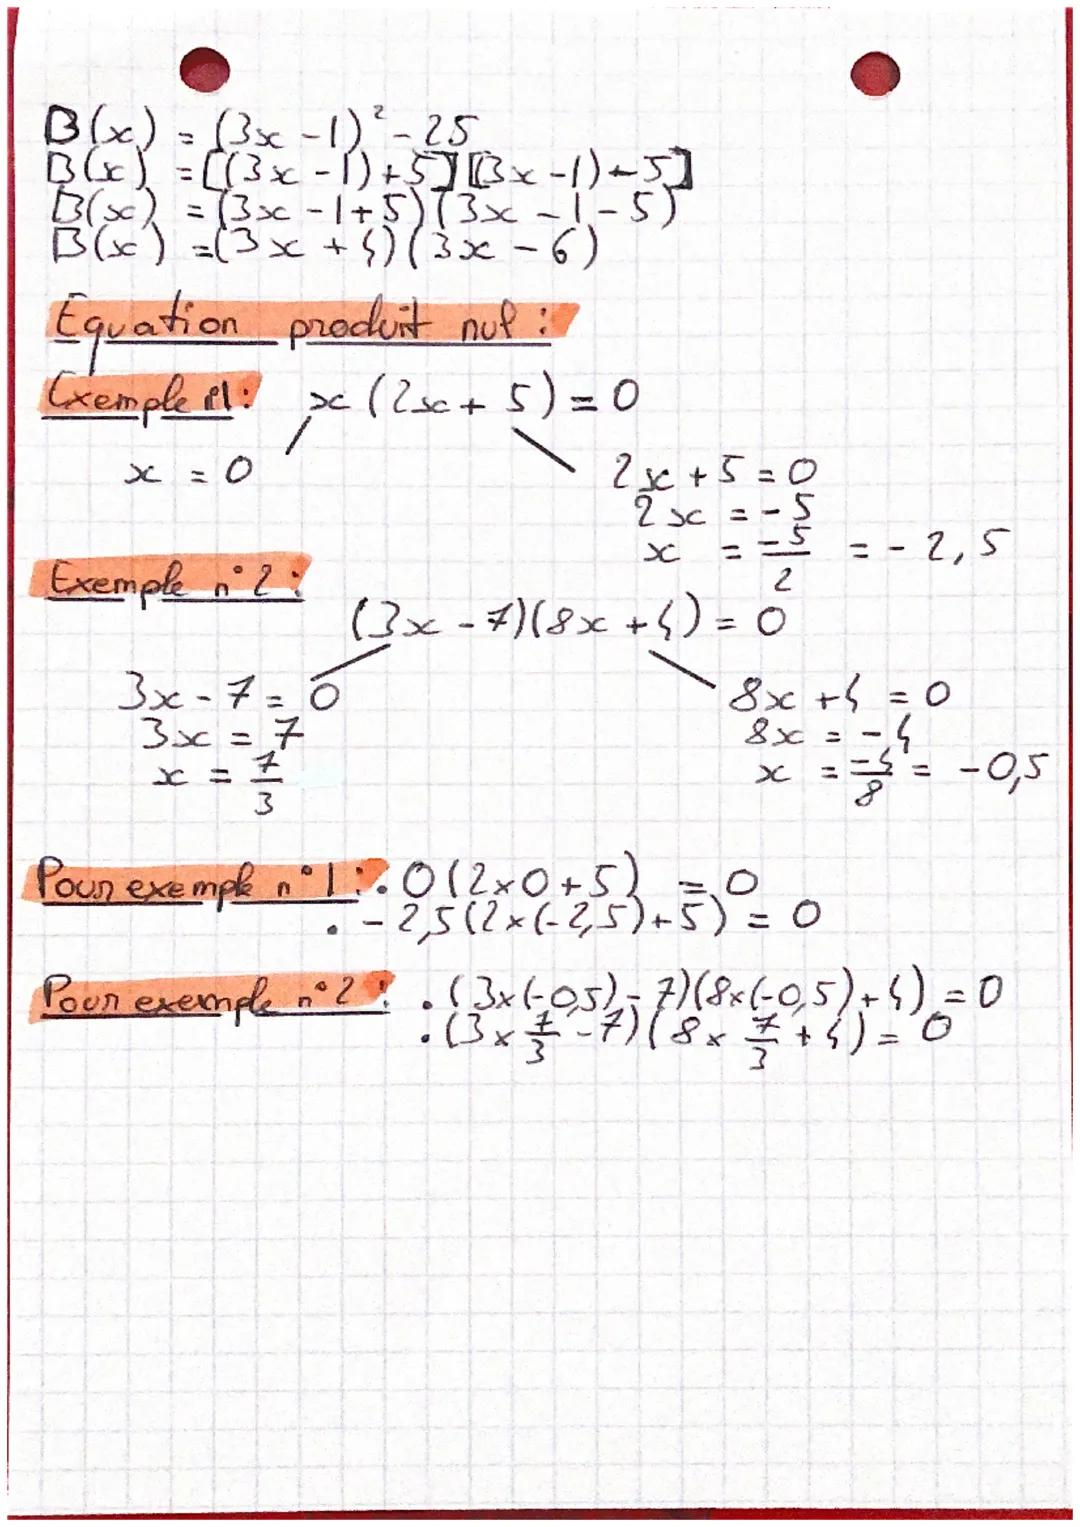 B(x) = (3x - 1)² - 25
B(x) = [(3x - 1) + 5] [(3x - 1) - 5]
B(x) = (3x - 1 + 5)(3x - 1 - 5)
B(x) = (3x + 4)(3x - 6)
Equation produit nul :
Exemple n°1 : x (2x + 5) = 0
x = 0
2x + 5 = 0
2x = - 5
x = -5/2 = - 2,5
Exemple n°2 :
(3x - 7)(8x + 4) = 0
3x - 7 = 0
3x = 7
x = 7/3
8x + 4 = 0
8x = - 4
x = -4/8 = - 0,5
Pour exemple n°1 : . 0 (2 × 0 + 5) = 0
. - 2,5 (2 × (- 2,5) + 5) = 0
Pour exemple n°2 : . (3 × (- 0,5) - 7)(8 × (- 0,5) + 4) = 0
. (3 × 7/3 - 7)(8 × 7/3 + 4) = 0